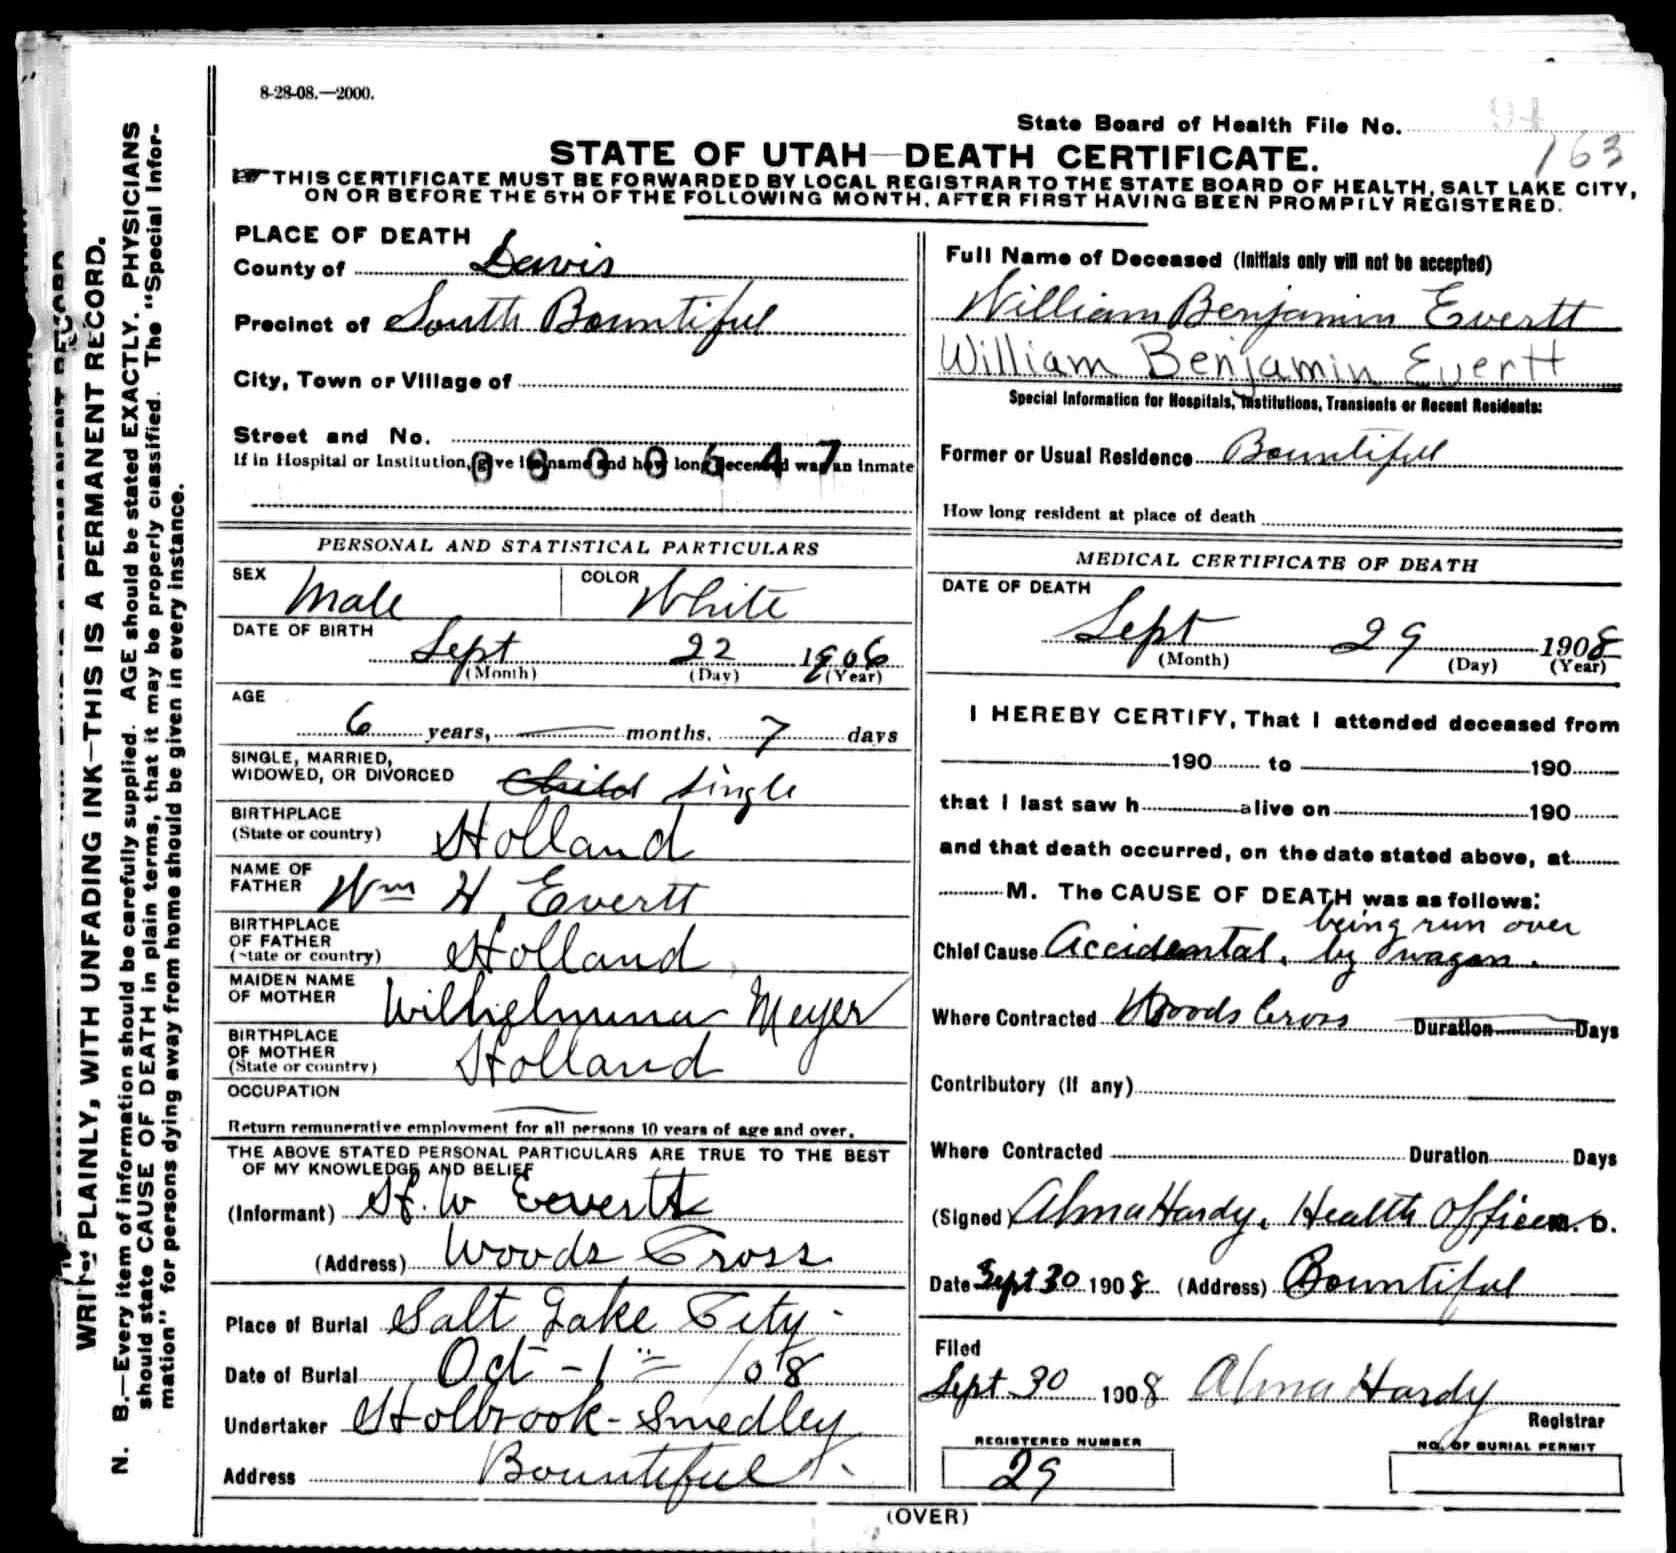 8-28-08.—2000.
State Board of Health File No. 94
163
STATE OF UTAH—DEATH CERTIFICATE.
THIS CERTIFICATE MUST BE FORWARDED BY LOCAL REGISTRAR TO THE STATE BOARD OF HEALTH, SALT LAKE CITY,
ON OR BEFORE THE 5TH OF THE FOLLOWING MONTH, AFTER FIRST HAVING BEEN PROMPTLY REGISTERED.
WRITE PLAINLY, WITH UNFADING INK—THIS IS A PERMANENT RECORD.
N. B.—Every item of information should be carefully supplied. AGE should be stated EXACTLY. PHYSICIANS
should state CAUSE OF DEATH in plain terms, that it may be properly classified. The "Special Infor-
mation" for persons dying away from home should be given in every instance.
PLACE OF DEATH
County of Davis
Precinct of South Bountiful
City, Town or Village of
Street and No.
If in Hospital or Institution, give its name and how long deceased was an Inmate
0000547
PERSONAL AND STATISTICAL PARTICULARS
SEX Male COLOR White
DATE OF BIRTH
Sept 22 1906
(Month) (Day) (Year)
AGE
6 years, — months. 7 days
SINGLE, MARRIED,
WIDOWED, OR DIVORCED Child Single
BIRTHPLACE
(State or country) Holland
NAME OF
FATHER Wm H Evertt
BIRTHPLACE
OF FATHER
(State or country) Holland
MAIDEN NAME
OF MOTHER Wilhelmina Meyer
BIRTHPLACE
OF MOTHER
(State or country) Holland
OCCUPATION
Return remunerative employment for all persons 10 years of age and over.
THE ABOVE STATED PERSONAL PARTICULARS ARE TRUE TO THE BEST
OF MY KNOWLEDGE AND BELIEF
(Informant) H. W Eevertt
(Address) Woods Cross
Place of Burial Salt Lake City
Date of Burial Oct - 1 1908
Undertaker Holbrook-Smedley
Address Bountiful
Full Name of Deceased (Initials only will not be accepted)
William Benjamin Evertt
William Benjamin Evertt
Special Information for Hospitals, Institutions, Transients or Recent Residents:
Former or Usual Residence Bountifull
How long resident at place of death
MEDICAL CERTIFICATE OF DEATH
DATE OF DEATH
Sept 29 1908
(Month) (Day) (Year)
I HEREBY CERTIFY, That I attended deceased from
190 to 190
that I last saw h alive on 190
and that death occurred, on the date stated above, at
M. The CAUSE OF DEATH was as follows:
being run over
Chief Cause Accidental. by wagon.
Where Contracted Woods Cross Duration Days
Contributory (If any)
Where Contracted Duration Days
(Signed Alma Hardy, Health Officer M. D.
Date Sept 30 1908 (Address) Bountiful
Filed
Sept 30 1908 Alma Hardy
Registrar
REGISTERED NUMBER
29
NO. OF BURIAL PERMIT
(OVER)